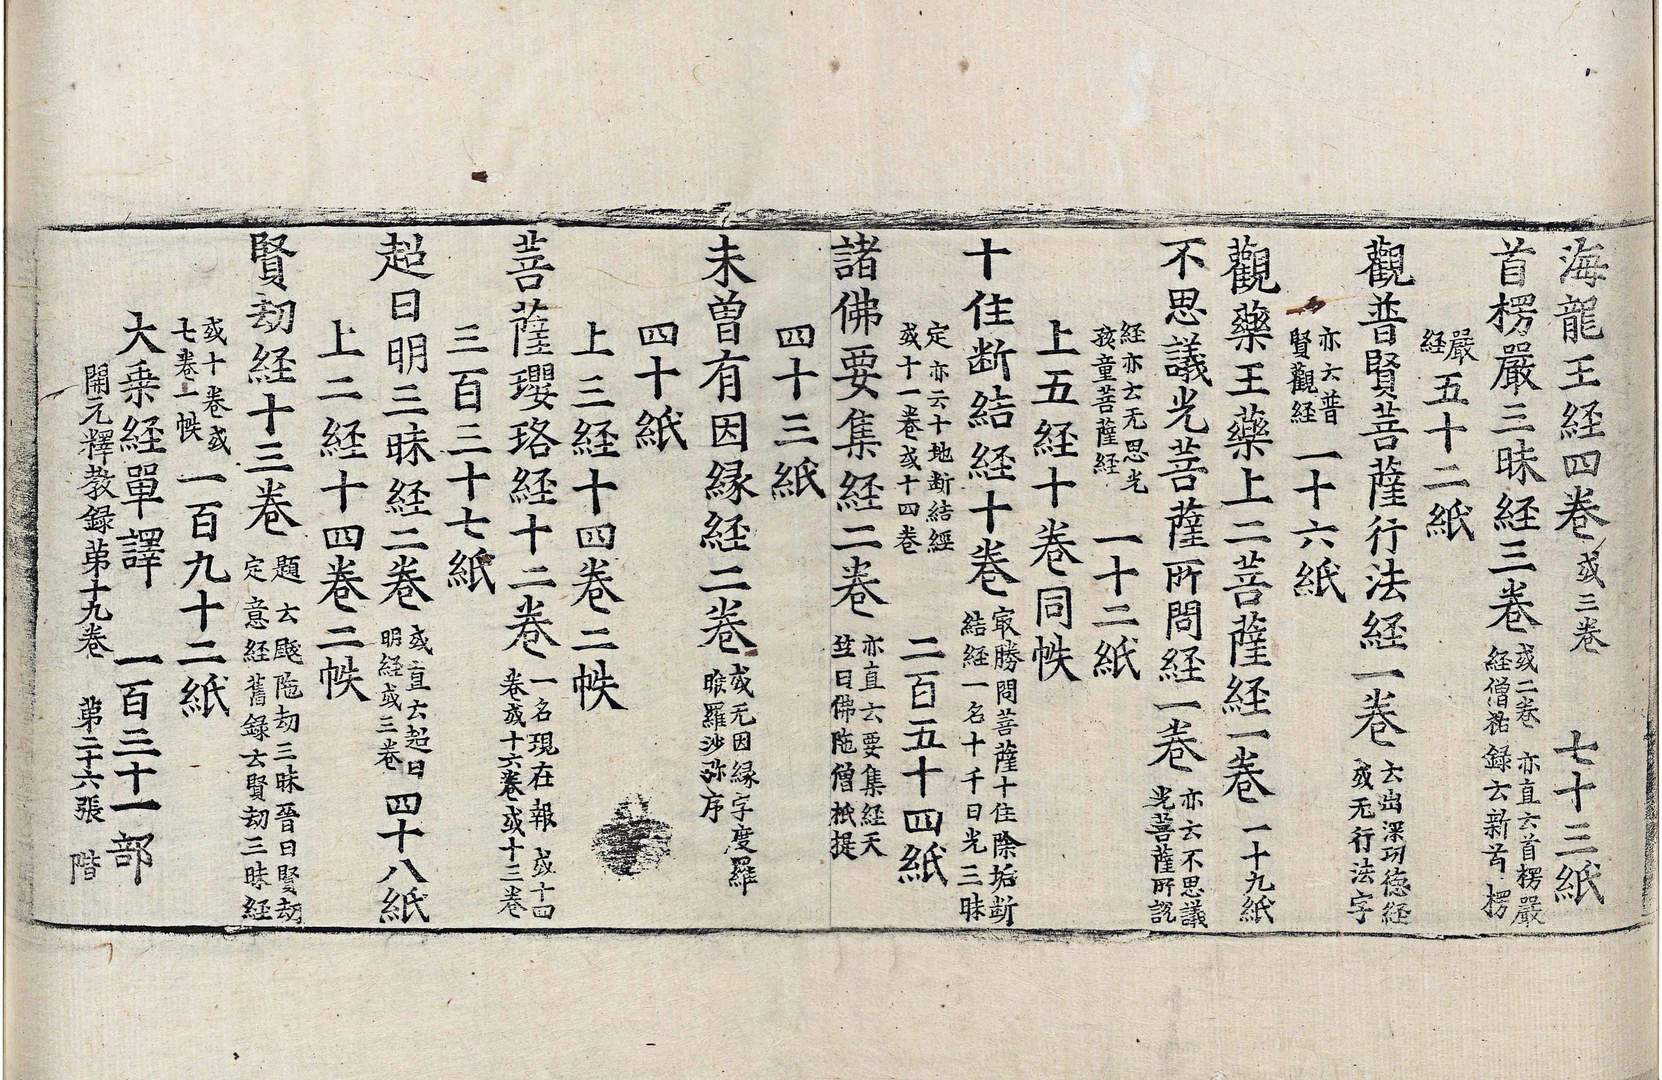 海龍王経四卷或三卷 七十三紙
首楞嚴三昧経三卷或二卷 亦直云首楞嚴経僧祐録云新首楞
嚴経 五十二紙
觀普賢菩薩行法経一卷云出深功德経或无行法字
亦云普賢觀経 一十六紙
觀藥王藥上二菩薩経一卷 一十九紙
不思議光菩薩所問経一卷亦云不思議光菩薩所說
経亦云无思光孩童菩薩経 一十二紙
上五経十卷同帙
十住断結経十卷㝡勝問菩薩十住除垢断結経一名十千日光三昧
定亦云十地断結經或十一卷或十四卷 二百五十四紙
諸佛要集経二卷亦直云要集経天竺曰佛陁僧祇提
四十三紙
未曾有因縁経二卷或无因縁字度羅睺羅沙弥序
四十紙
上三経十四卷二帙
菩薩瓔珞経十二卷一名現在報 或十四卷或十六卷或十三卷
三百三十七紙
超日明三昧経二卷或直云超日明経或三卷 四十八紙
上二経十四卷二帙
賢劫経十三卷題云颰陁劫三昧晉曰賢劫定意経舊録云賢劫三昧経
或十卷或七卷上帙 一百九十二紙
大乗経單譯 一百三十一部
開元釋教録苐十九卷 苐二十六張 階